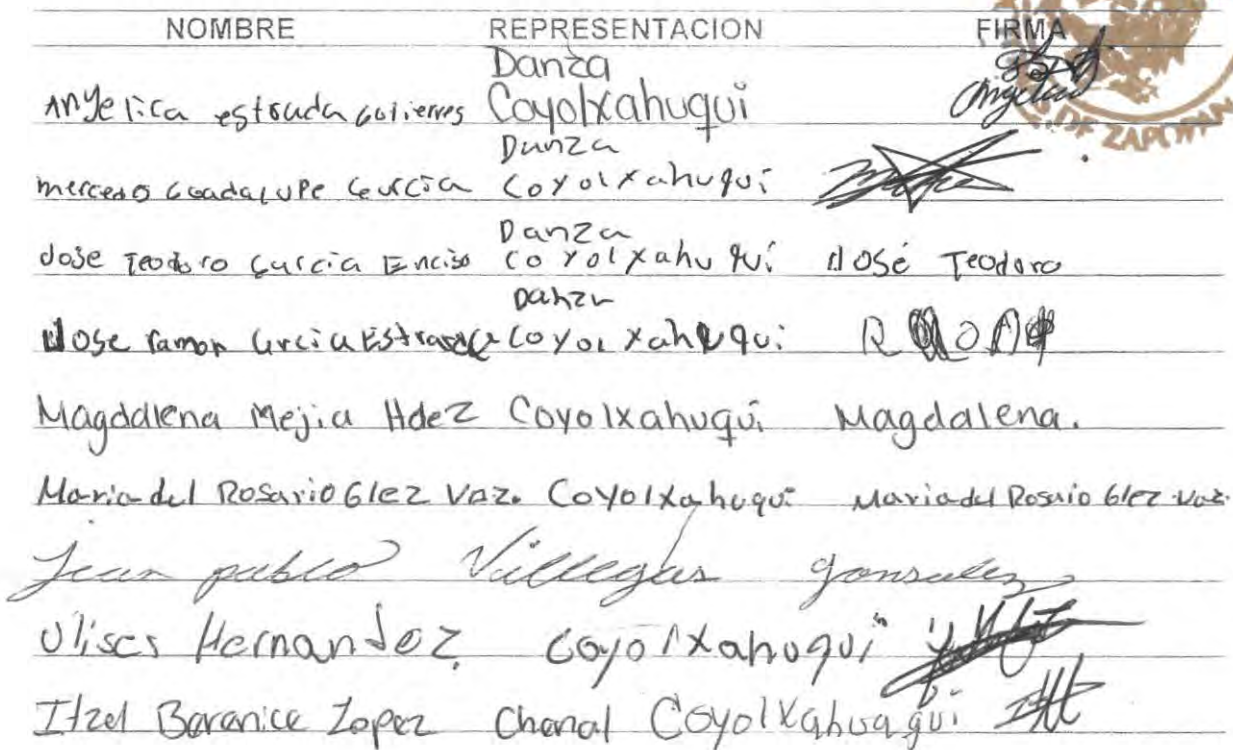 NOMBRE REPRESENTACION FIRMA
Danza
Angelica estrada Gutierres Coyolxahuqui Angelica
Danza
mercedes Guadalupe García Coyolxahuqui
Danza
Jose Teodoro García Enciso Coyolxahuqui José Teodoro
Danza
Jose ramon García Estrada Coyolxahuqui
Magdalena Mejia Hdez Coyolxahuqui Magdalena.
Maria del Rosario Glez Vaz. Coyolxahuqui Maria del Rosario Glez Vaz.
Juan pablo Villegas gonsalez
Ulises Hernandez Coyolxahuqui
Itzel Berenice Lopez Chanal Coyolxahuaqui
DE ZAPOPAN